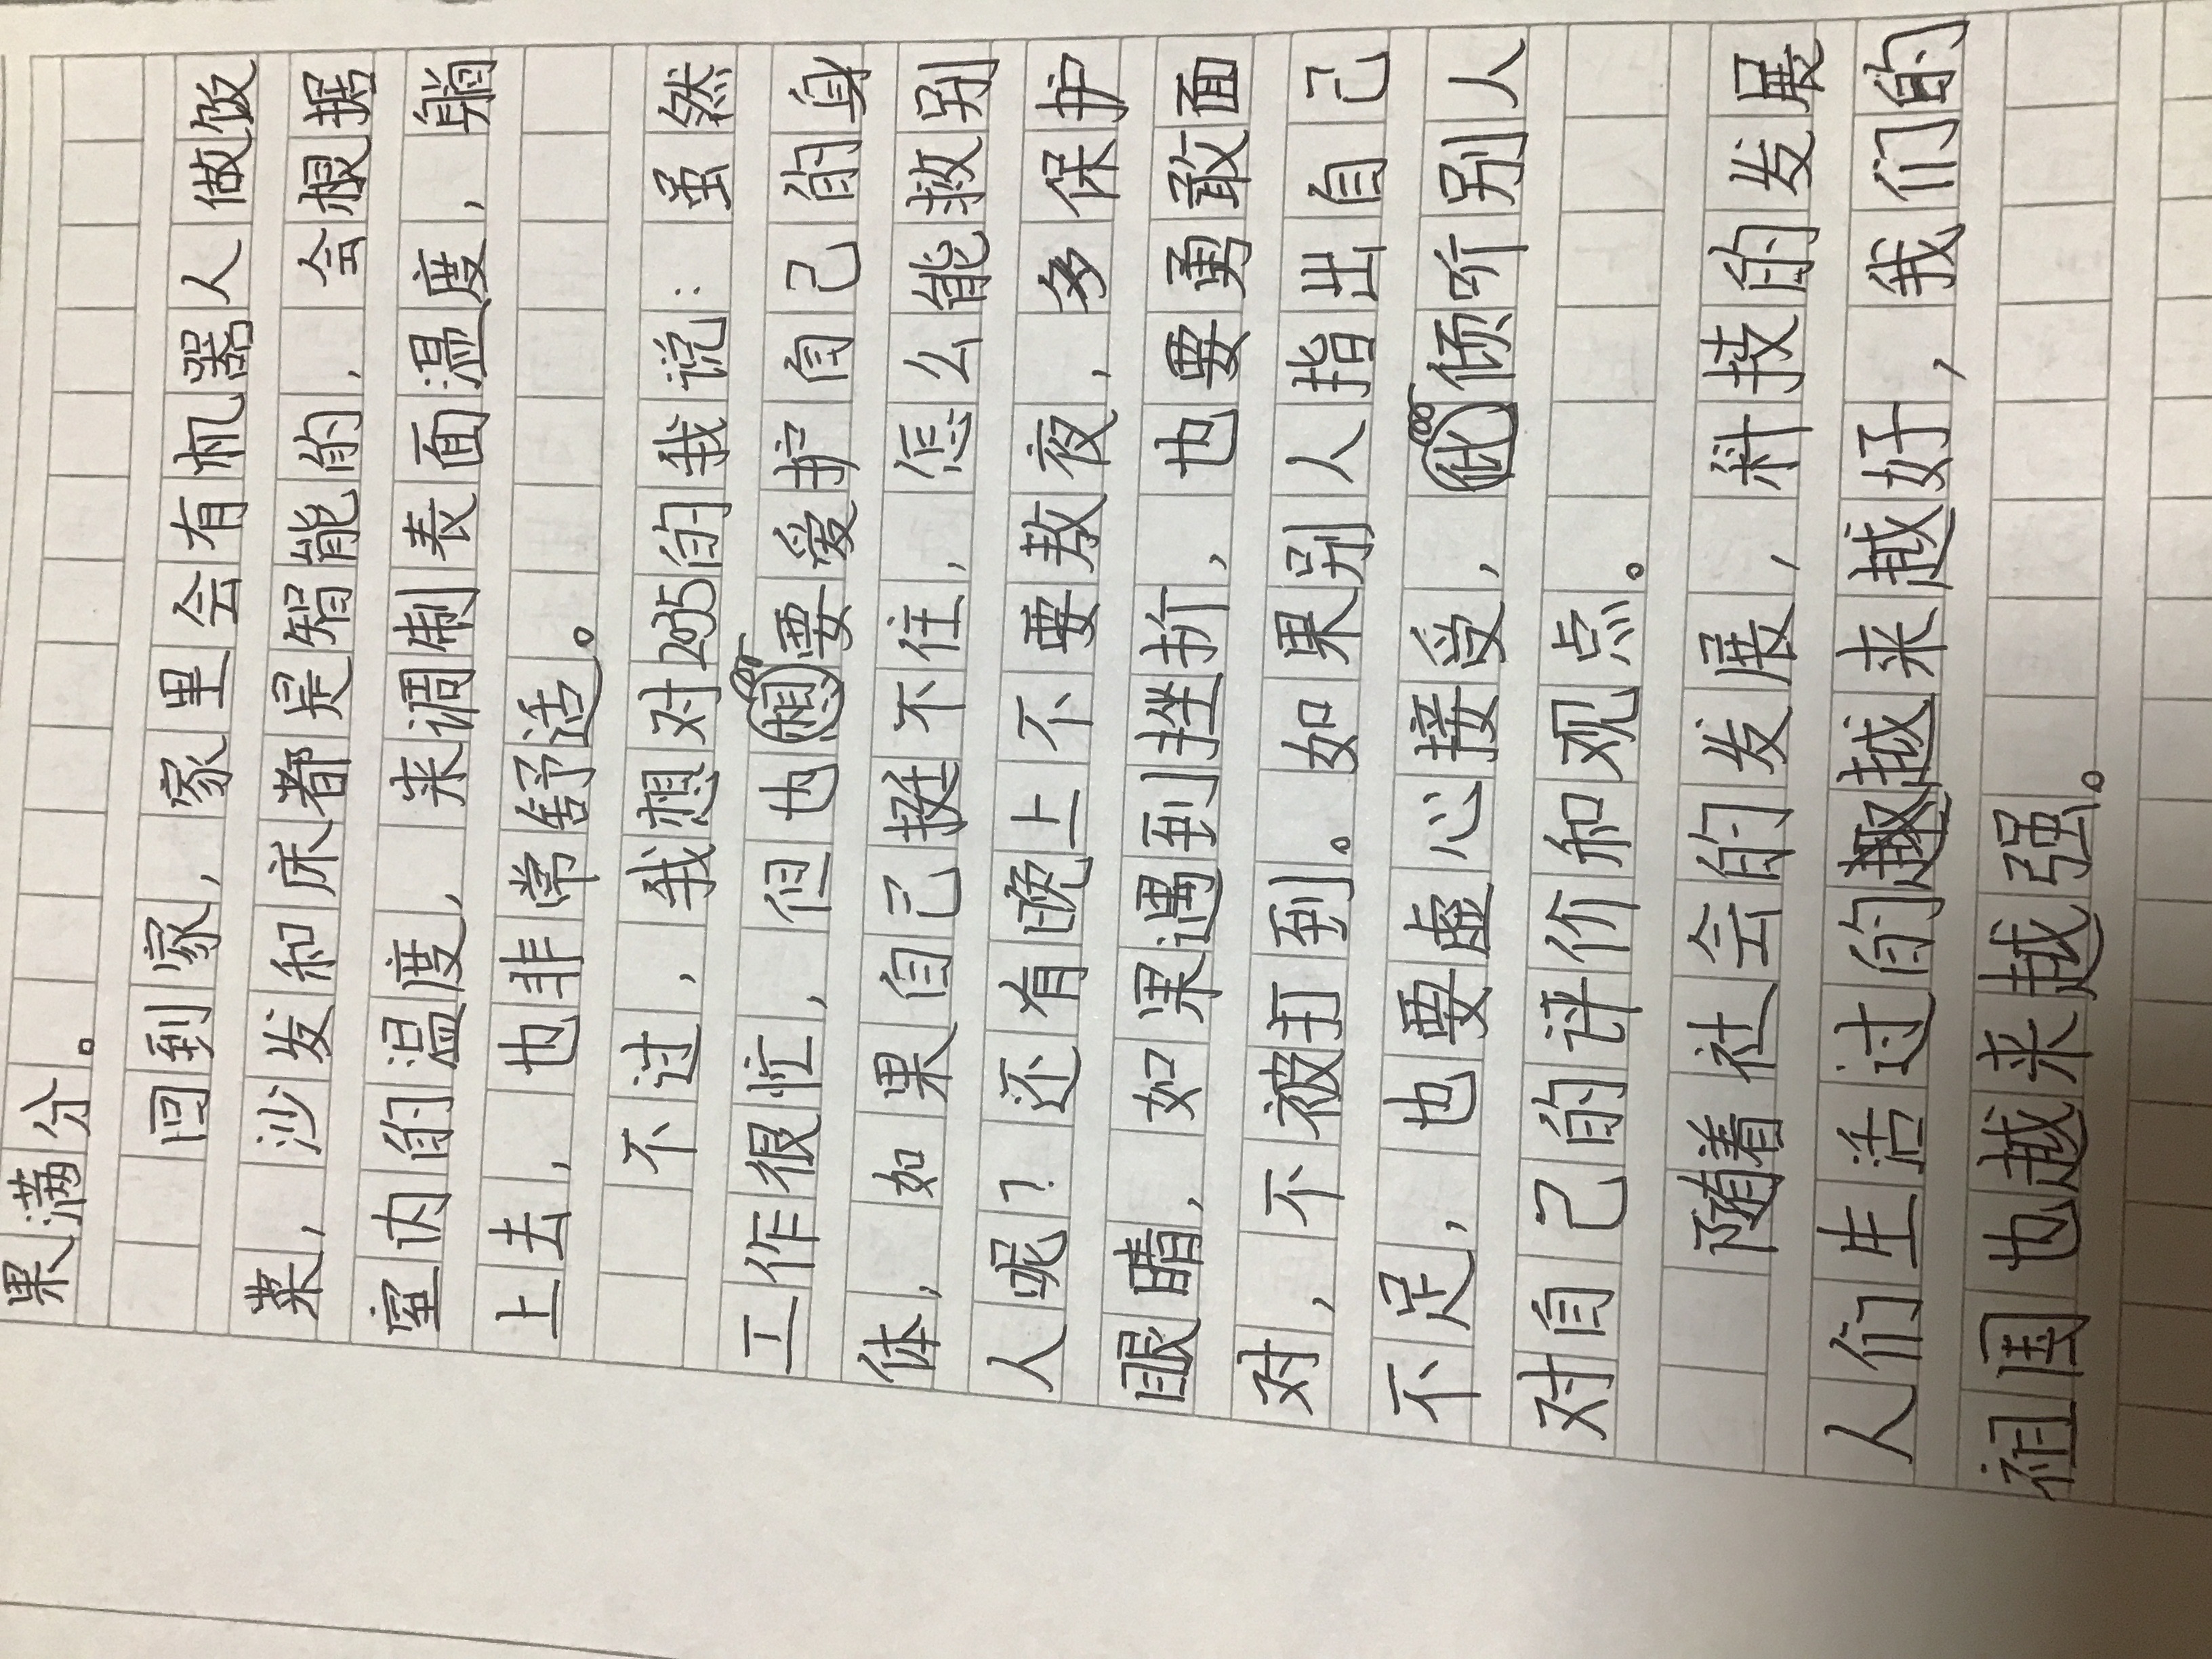 果满分。
回到家，家里会有机器人做饭
菜，沙发和床都是智能的，会根据
室内的温度，来调制表面温度，躺
上去，也非常舒适。
不过，我想对2035的我说：虽然
工作很忙，但也要爱护自己的身
体，如果自己挺不住，怎么能救别
人呢？还有晚上不要熬夜，多保护
眼睛，如果遇到挫折，也要勇敢面
对，不被打到。如果别人指出自己
不足，也要虚心接受，倾听别人
对自己的评价和观点。
随着社会的发展，科技的发展
人们生活过的越来越好，我们的
祖国也越来越强。